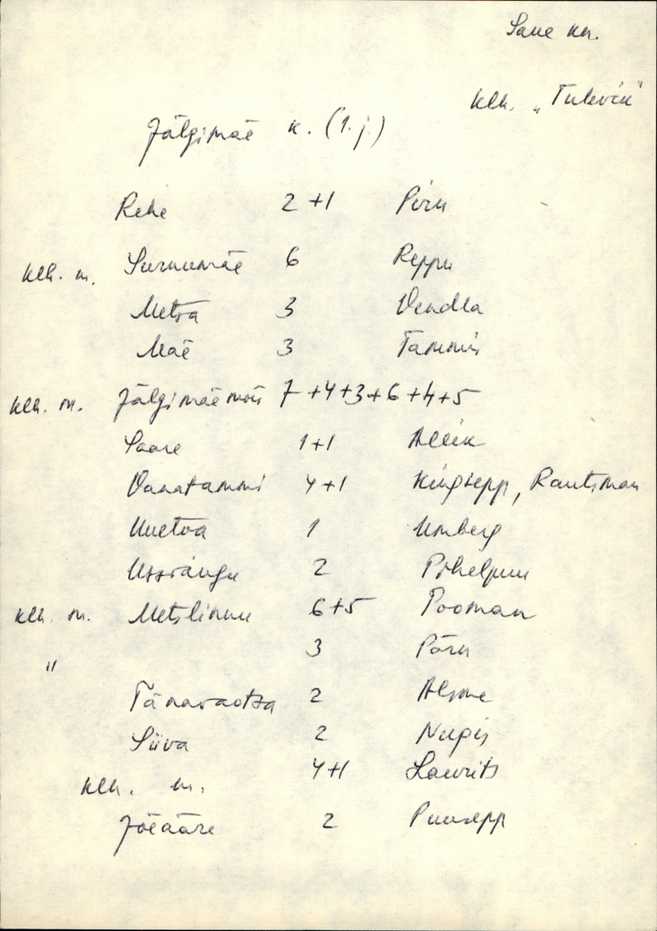 Saue kn.
klh. „Tulevik"
Jälgimäe k. (1. j.)
Rehe 2 +1 Pirn
klh. m. Surnumäe 6 Reppn
Metsa 3 Vendla
Mäe 3 Tammis
klh. m. Jälgimäe mõis 7 +4+3+6+4+5
Saare 1+1 Allik
Vanatammi 4+1 Kingsepp, Rautsman
Uuetoa 1 Umberg
Ussiaugu 2 Põhelpuu
klh. m. Metslinnu 6+5 Pooman
" 3 Pärn
Tänavaotsa 2
Siiva 2 Nugis
klh. m. 4+1 Laurits
Jõeääre 2 Puusepp